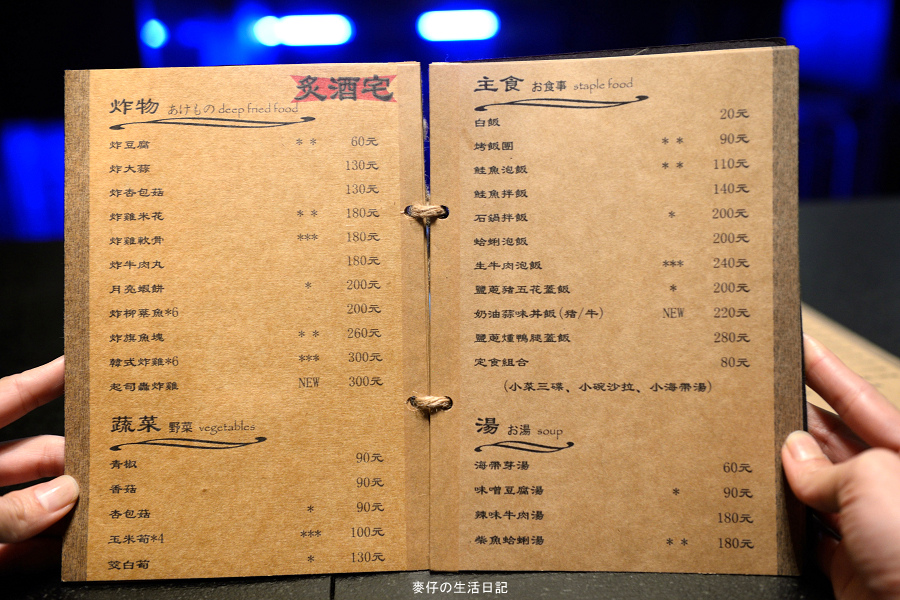 炙酒宅
炸物 あけもの deep fried food
炸豆腐 ** 60元
炸大蒜 130元
炸杏包菇 130元
炸雞米花 ** 180元
炸雞軟骨 *** 180元
炸牛肉丸 180元
月亮蝦餅 * 200元
炸柳葉魚*6 200元
炸旗魚塊 ** 260元
韓式炸雞*6 *** 300元
起司轟炸雞 NEW 300元
蔬菜 野菜 vegetables
青椒 90元
香菇 90元
杏包菇 * 90元
玉米筍*4 *** 100元
茭白筍 * 130元
主食 お食事 staple food
白飯 20元
烤飯團 ** 90元
鮭魚泡飯 ** 110元
鮭魚拌飯 140元
石鍋拌飯 * 200元
蛤蜊泡飯 200元
生牛肉泡飯 *** 240元
鹽蔥豬五花蓋飯 * 200元
奶油蒜味丼飯(豬/牛) NEW 220元
鹽蔥燻鴨腿蓋飯 280元
定食組合 80元
(小菜三碟、小碗沙拉、小海帶湯)
湯 お湯 soup
海帶芽湯 60元
味噌豆腐湯 * 90元
辣味牛肉湯 180元
柴魚蛤蜊湯 ** 180元
麥仔の生活日記